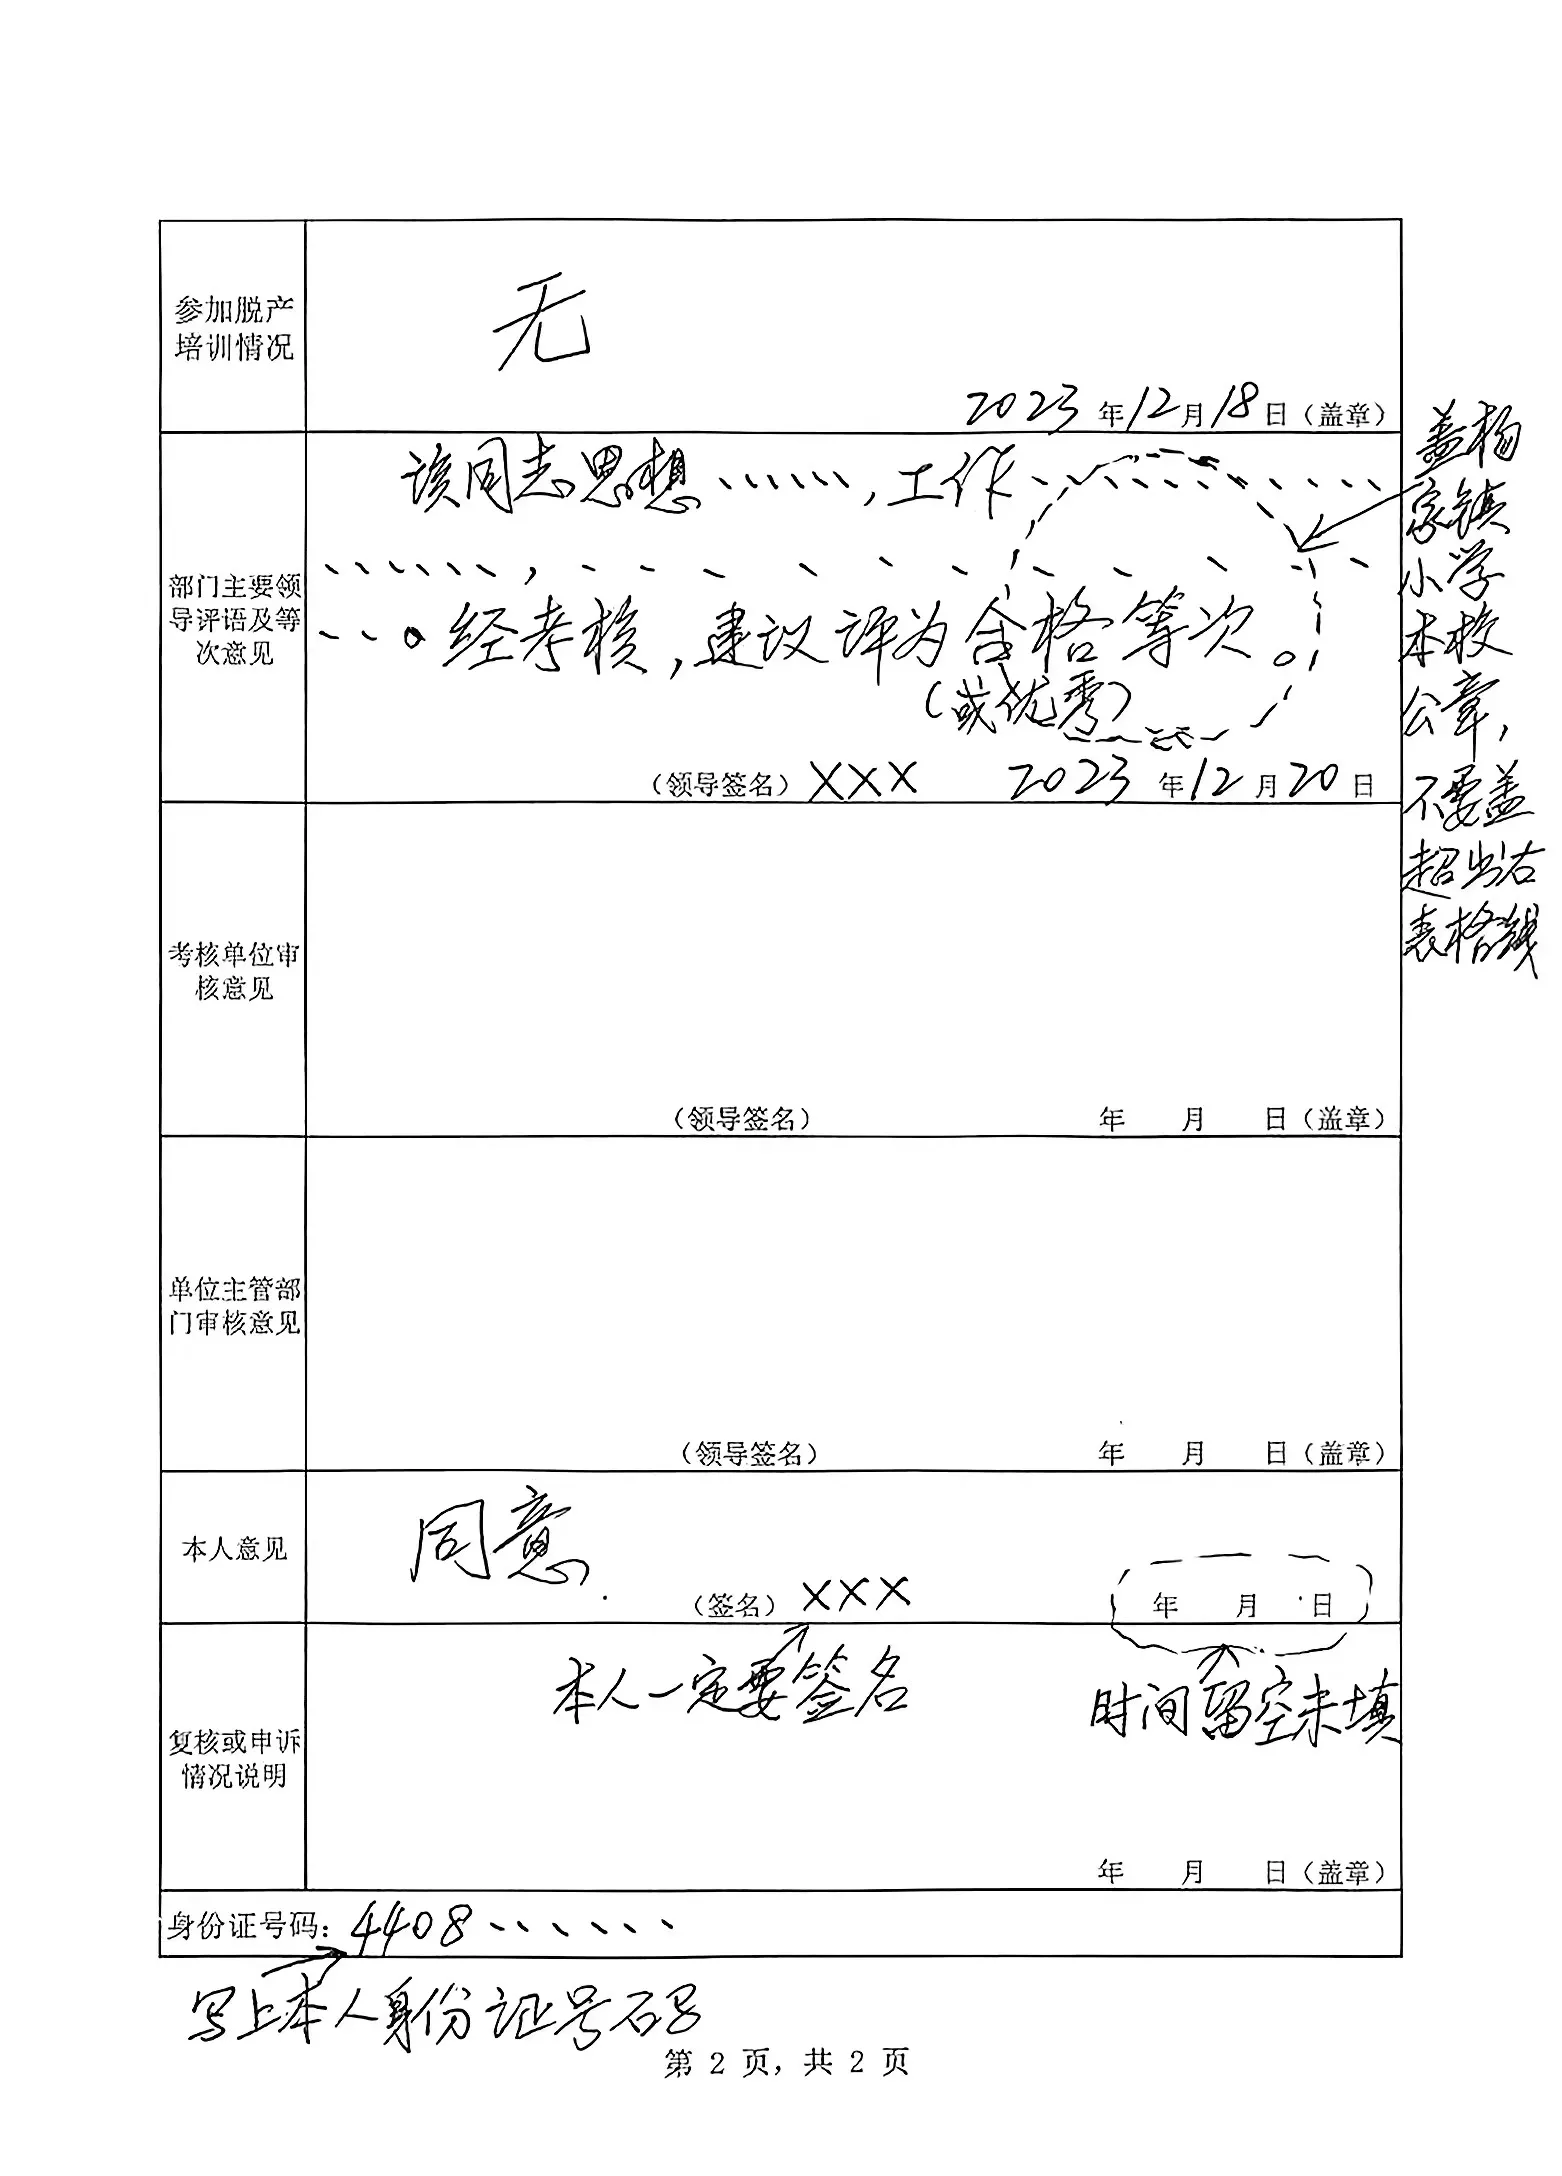 参加脱产
培训情况
无
2023年12月18日（盖章）
部门主要领
导评语及等
次意见
该同志思想……，工作…………
……，…………
…。经考核，建议评为合格等次。
（或优秀）
（领导签名）XXX 2023年12月20日
盖杨
家镇
小学
本校
公章，
不要盖
超出右
表格线
考核单位审
核意见
（领导签名） 年 月 日（盖章）
单位主管部
门审核意见
（领导签名） 年 月 日（盖章）
本人意见
同意.
（签名）XXX 年 月 日
复核或申诉
情况说明
本人一定要签名
时间留空未填
年 月 日（盖章）
身份证号码：4408……
写上本人身份证号码
第 2 页，共 2 页